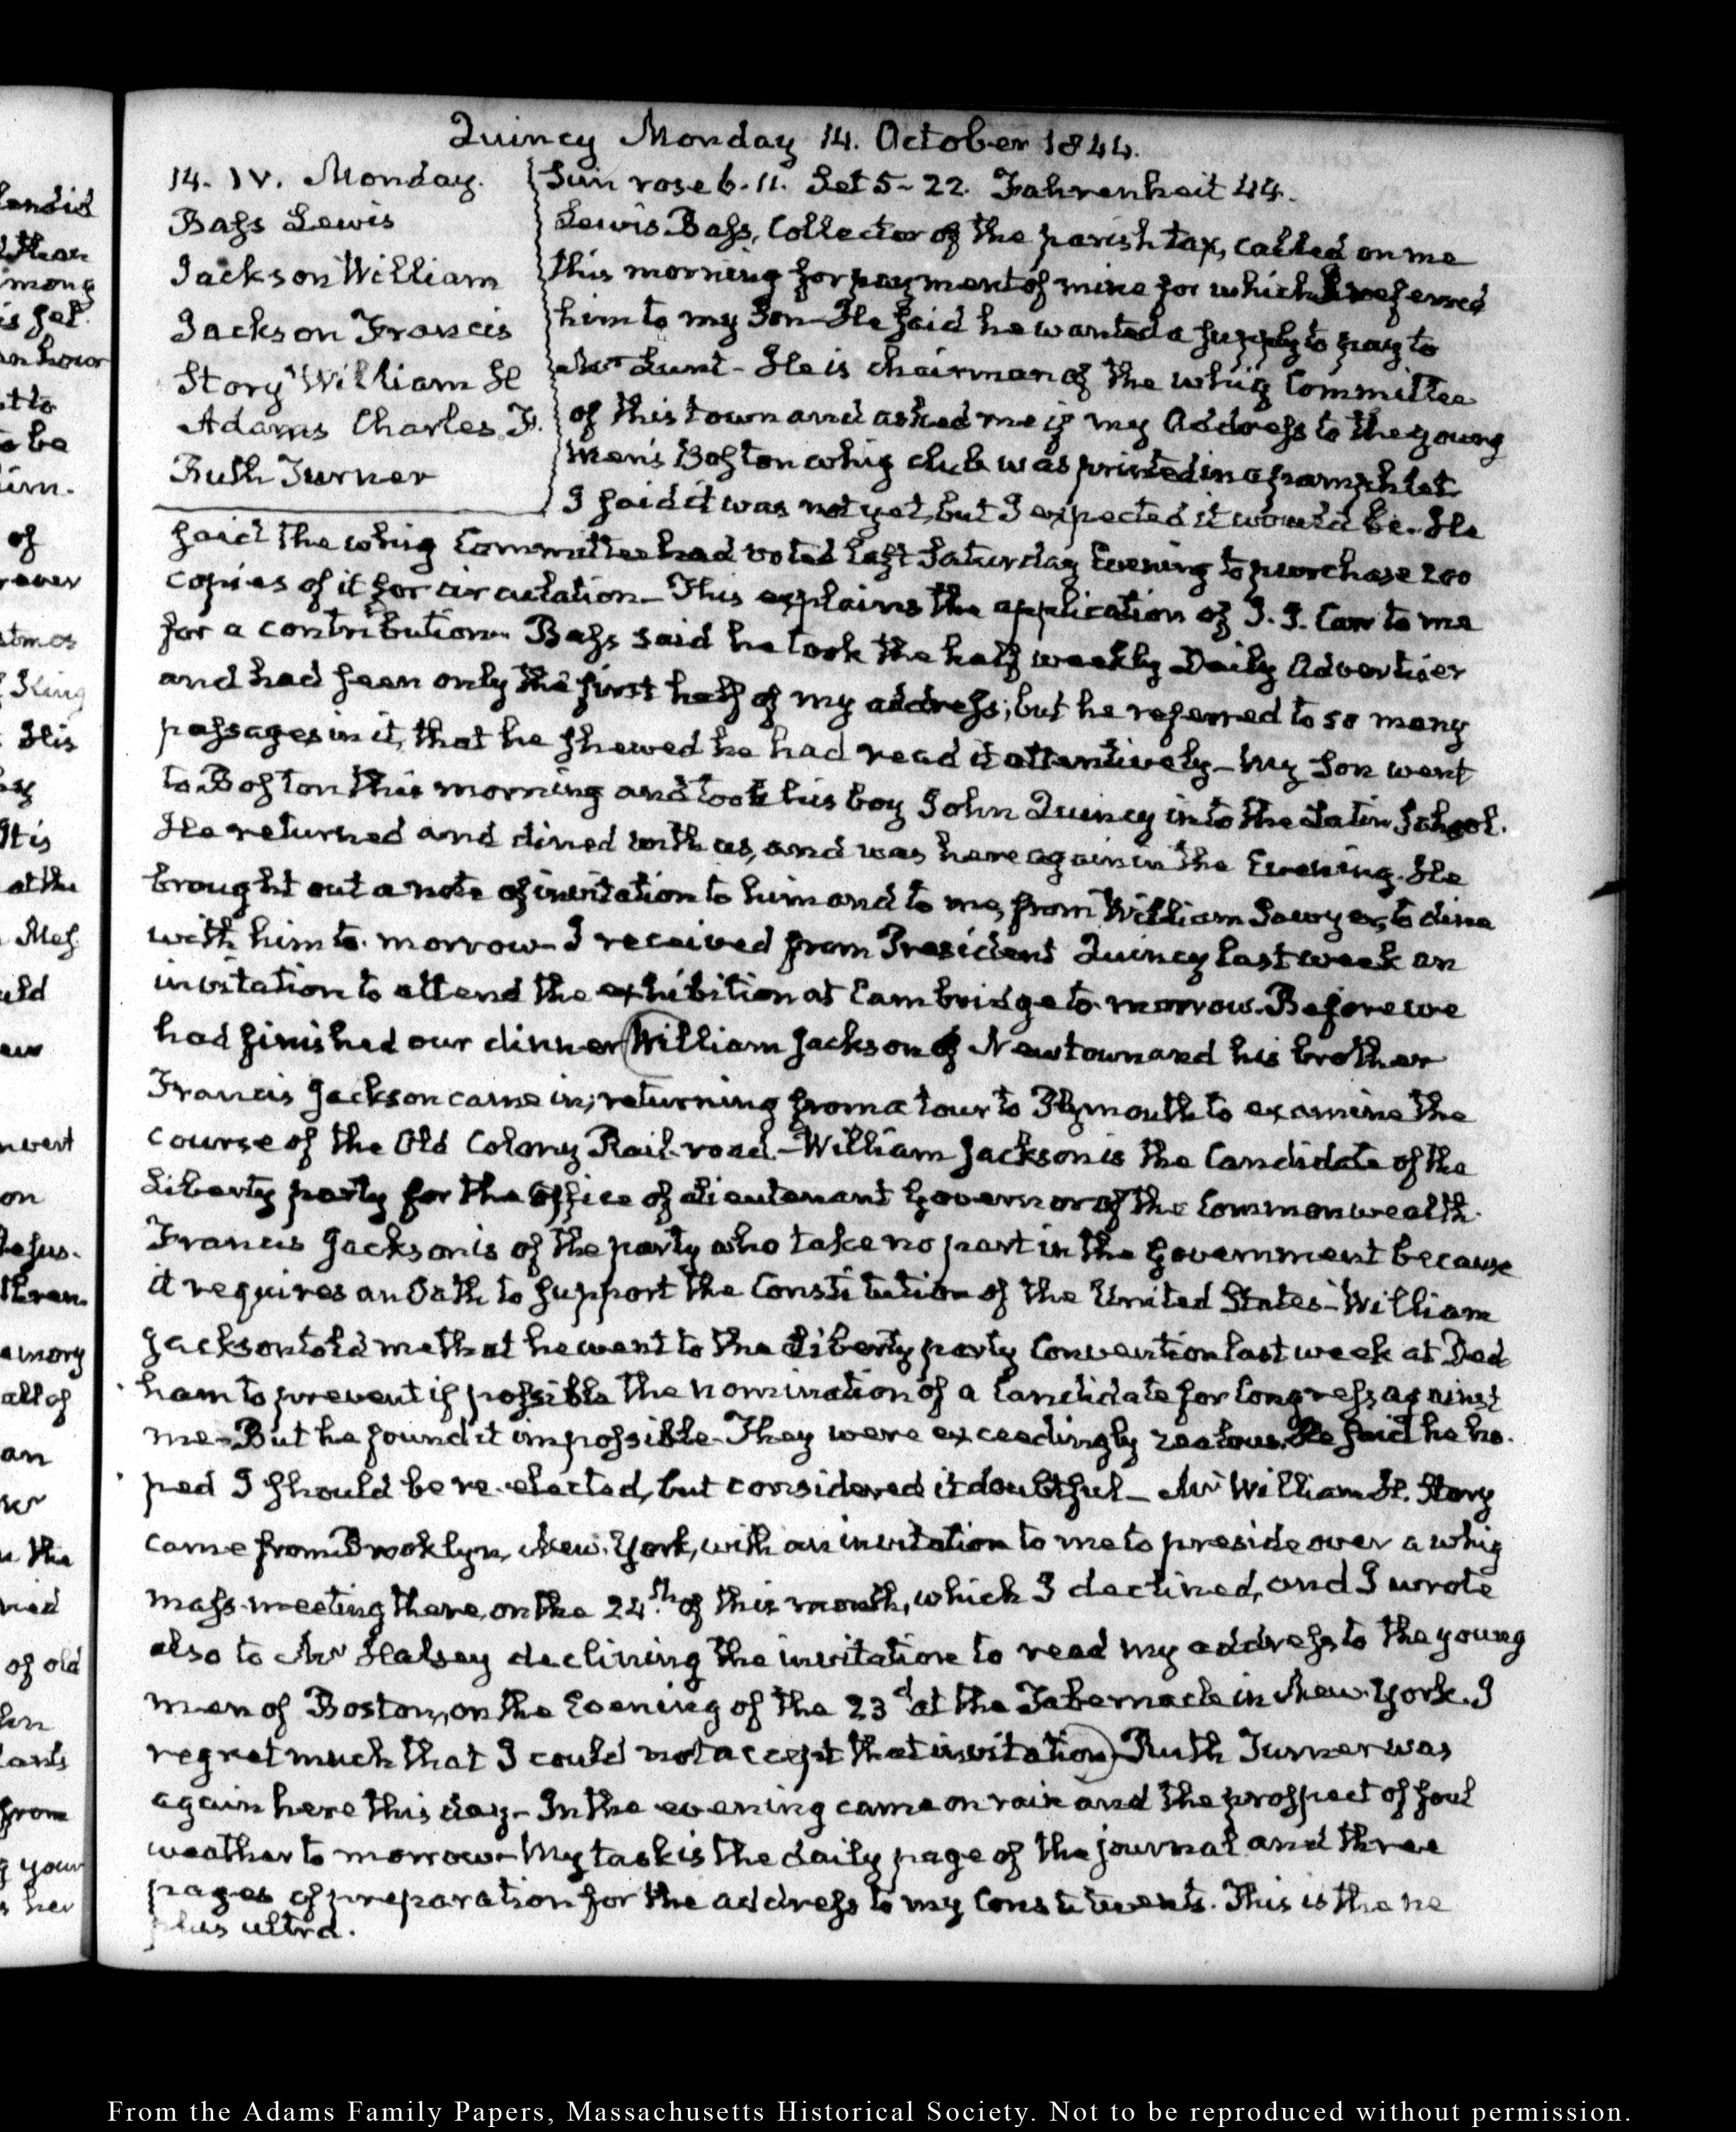 Quincy Monday 14. October 1844.
14. IV. Monday.
Bass Lewis
Jackson William
Jackson Francis
Story William H
Adams Charles F.
Ruth Turner
Sun rose 6-11. Set 5-22. Fahrenheit 44.
Lewis Bass, Collector of the parish tax, called on me
this morning for payment of mine for which I referred
him to my Son. He said he wanted a supply to pay to
Mr Lunt - He is chairman of the whig Committee
of this town and asked me if my Address to the young
men's Boston whig club was printed in a pamphlet
I said it was not yet, but I expected it would be. He
said the whig Committee had voted last Saturday Evening to purchase 200
copies of it for circulation - This explains the application of J. J. to me
for a contribution. Bass said he took the half weekly Daily Advertiser
and had seen only the first half of my address; but he referred to so many
passages in it, that he shewed he had read it attentively - My Son went
to Boston this morning and took his boy John Quincy into the Latin School.
He returned and dined with us, and was here again in the Evening. He
brought out a note of invitation to him and to me, from William Sawyer, to dine
with him to-morrow - I received from President Quincy last week an
invitation to attend the exhibition at Cambridge to-morrow. Before we
had finished our dinner William Jackson of Newtown and his brother
Francis Jackson came in; returning from a tour to Plymouth to examine the
course of the Old Colony Rail-road - William Jackson is the Candidate of the
Liberty party for the Office of Lieutenant Governor of the Commonwealth.
Francis Jackson is of the party who take no part in the Government because
it requires an Oath to support the Constitution of the United States - William
Jackson told me that he went to the Liberty party Convention last week at Ded
ham to prevent if possible the nomination of a Candidate for Congress against
me - But he found it impossible. They were exceedingly zealous. He said he ho-
ped I should be re-elected, but considered it doubtful - Mr William H. Story
came from Brooklyn, New-York, with an invitation to me to preside over a whig
mass-meeting there, on the 24th of this month, which I declined, and I wrote
also to Mr Halsey declining the invitation to read my address to the young
men of Boston, on the Evening of the 23d at the Tabernacle in New-York. I
regret much that I could not accept that invitation - Ruth Turner was
again here this day - In the evening came on rain and the prospect of foul
weather to morrow - My task is the daily page of the journal and three
pages of preparation for the address to my Constituents. This is the ne
plus ultra.
From the Adams Family Papers, Massachusetts Historical Society. Not to be reproduced without permission.